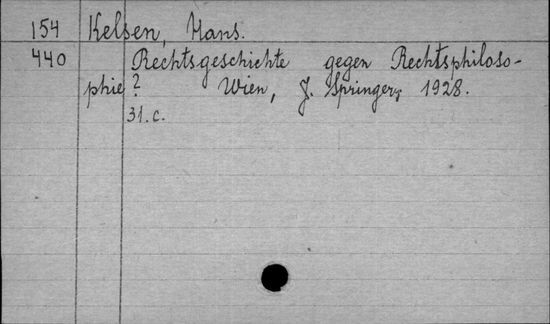 154 Kelsen, Hans.
440 Rechtsgeschichte gegen Rechtsphiloso-
phie? Wien, J. Springer, 1928.
31.c.